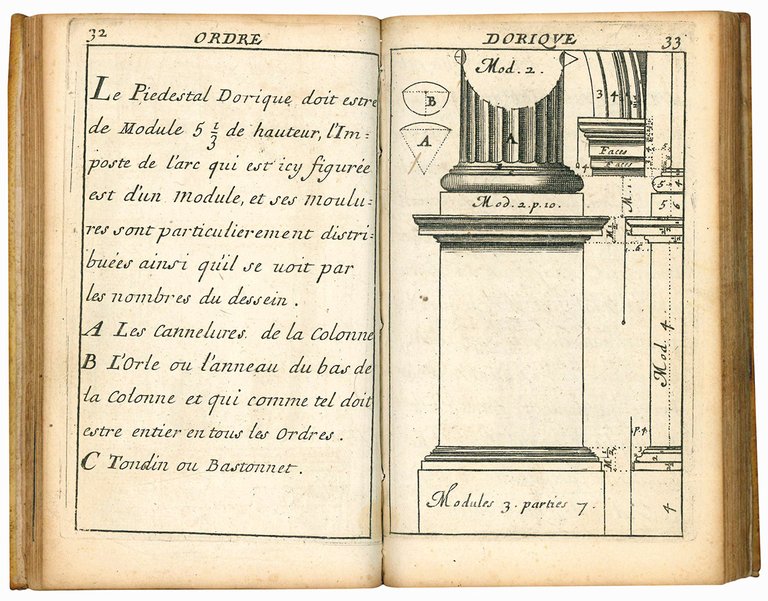 32 ORDRE
Le Piedestal Dorique doit estre
de Module 5 1/3 de hauteur, l'Im=
poste de l'arc qui est icy figurée
est d'un module, et ses moulu=
res sont particulierement distri=
buées ainsi qu'il se uoit par
les nombres du dessein.
A Les Cannelures de la Colonne
B L'Orle ou l'anneau du bas de
la Colonne et qui comme tel doit
estre entier en tous les Ordres.
C Tondin ou Bastonnet.
DORIQVE 33
Mod. 2.
B
A
A
3 4
Faces
Faces
4
5 4
Mod. 2. p. 10.
5 6
M 1/2
6
Mod. 4
p. 4
M 1/2
2
Modules 3. parties 7.
4